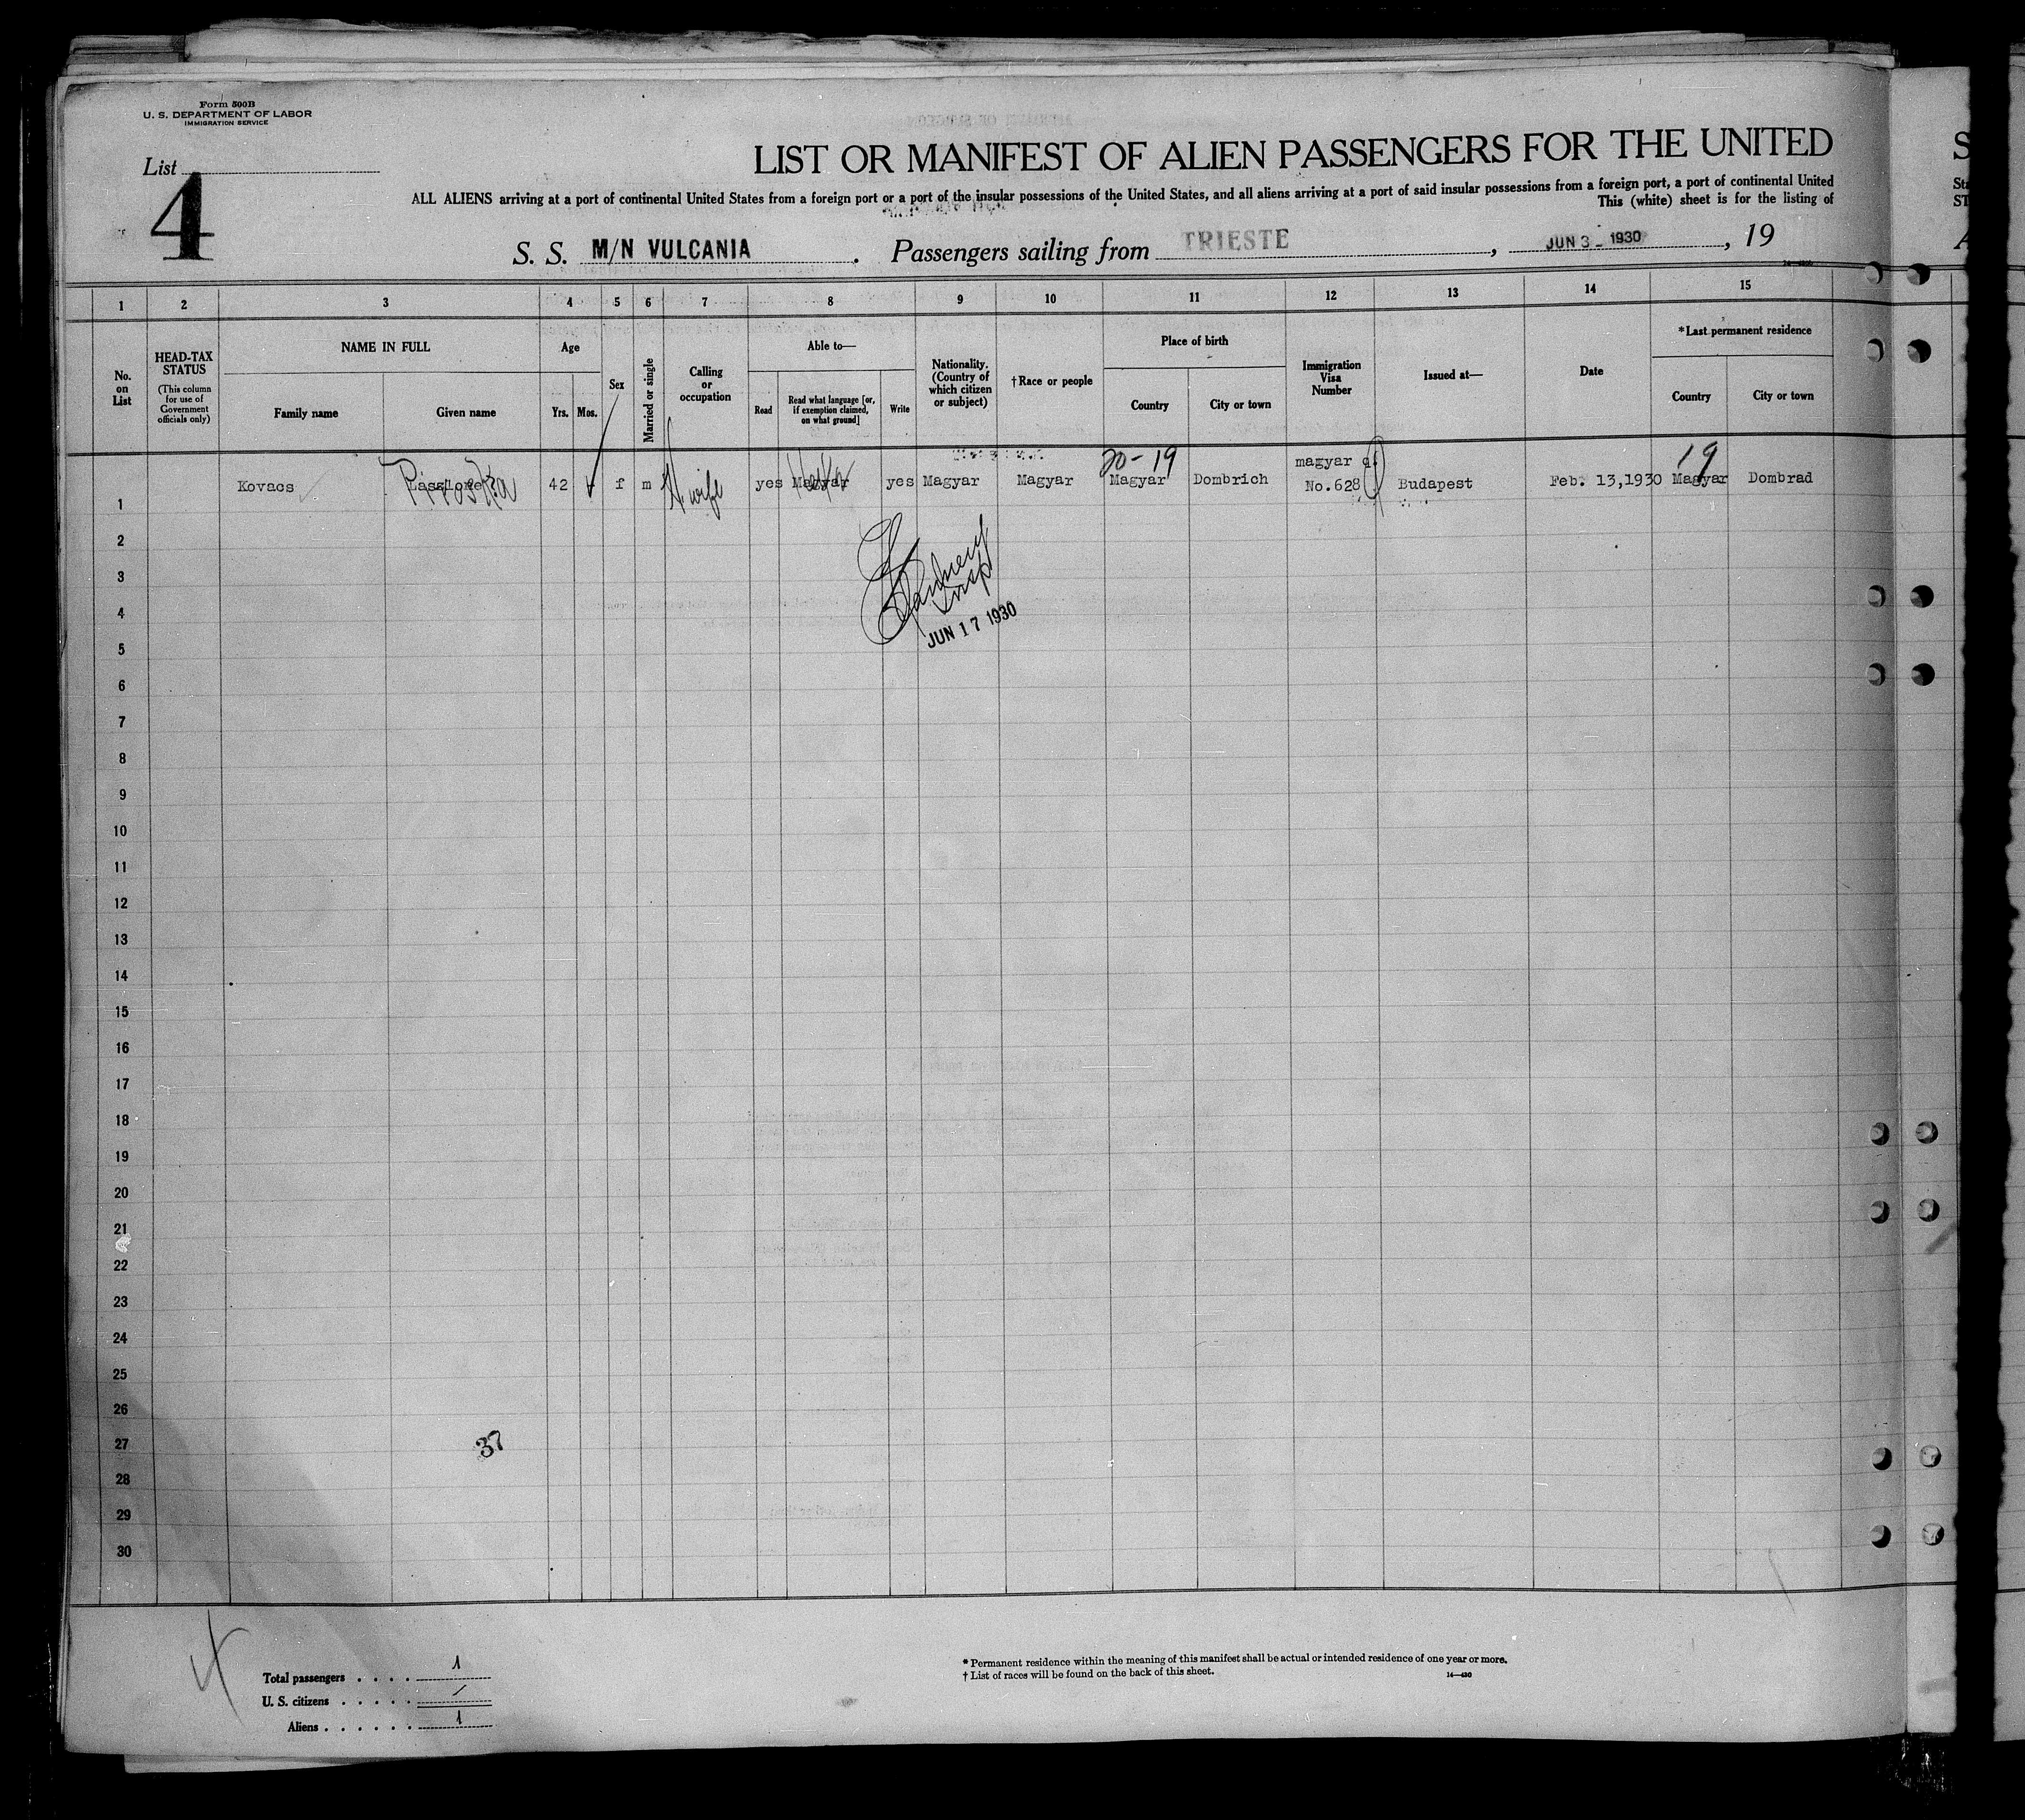 Form 500B
U. S. DEPARTMENT OF LABOR
IMMIGRATION SERVICE
List
4
LIST OR MANIFEST OF ALIEN PASSENGERS FOR THE UNITED
ALL ALIENS arriving at a port of continental United States from a foreign port or a port of the insular possessions of the United States, and all aliens arriving at a port of said insular possessions from a foreign port, a port of continental United
This (white) sheet is for the listing of
S. S. M/N VULCANIA . Passengers sailing from TRIESTE , JUN 3 - 1930 , 19
1 2 3 4 5 6 7 8 9 10 11 12 13 14 15
No. on List
HEAD-TAX STATUS
(This column for use of Government officials only)
NAME IN FULL
Family name
Given name
Age
Yrs.
Mos.
Sex
Married or single
Calling or occupation
Able to—
Read
Read what language [or, if exemption claimed, on what ground]
Write
Nationality. (Country of which citizen or subject)
†Race or people
Place of birth
Country
City or town
Immigration Visa Number
Issued at—
Date
*Last permanent residence
Country
City or town
20-19
magyar
19
1 Kovacs Piroska 42 f m H wife yes Magyar yes Magyar Magyar Magyar Dombrich No.628 Budapest Feb. 13,1930 Magyar Dombrad
2
3
4
JUN 17 1930
5
6
7
8
9
10
11
12
13
14
15
16
17
18
19
20
21
22
23
24
25
26
27
37
28
29
30
Total passengers . . . . 1
U. S. citizens . . . . .
Aliens . . . . . . 1
* Permanent residence within the meaning of this manifest shall be actual or intended residence of one year or more.
† List of races will be found on the back of this sheet.
14—430